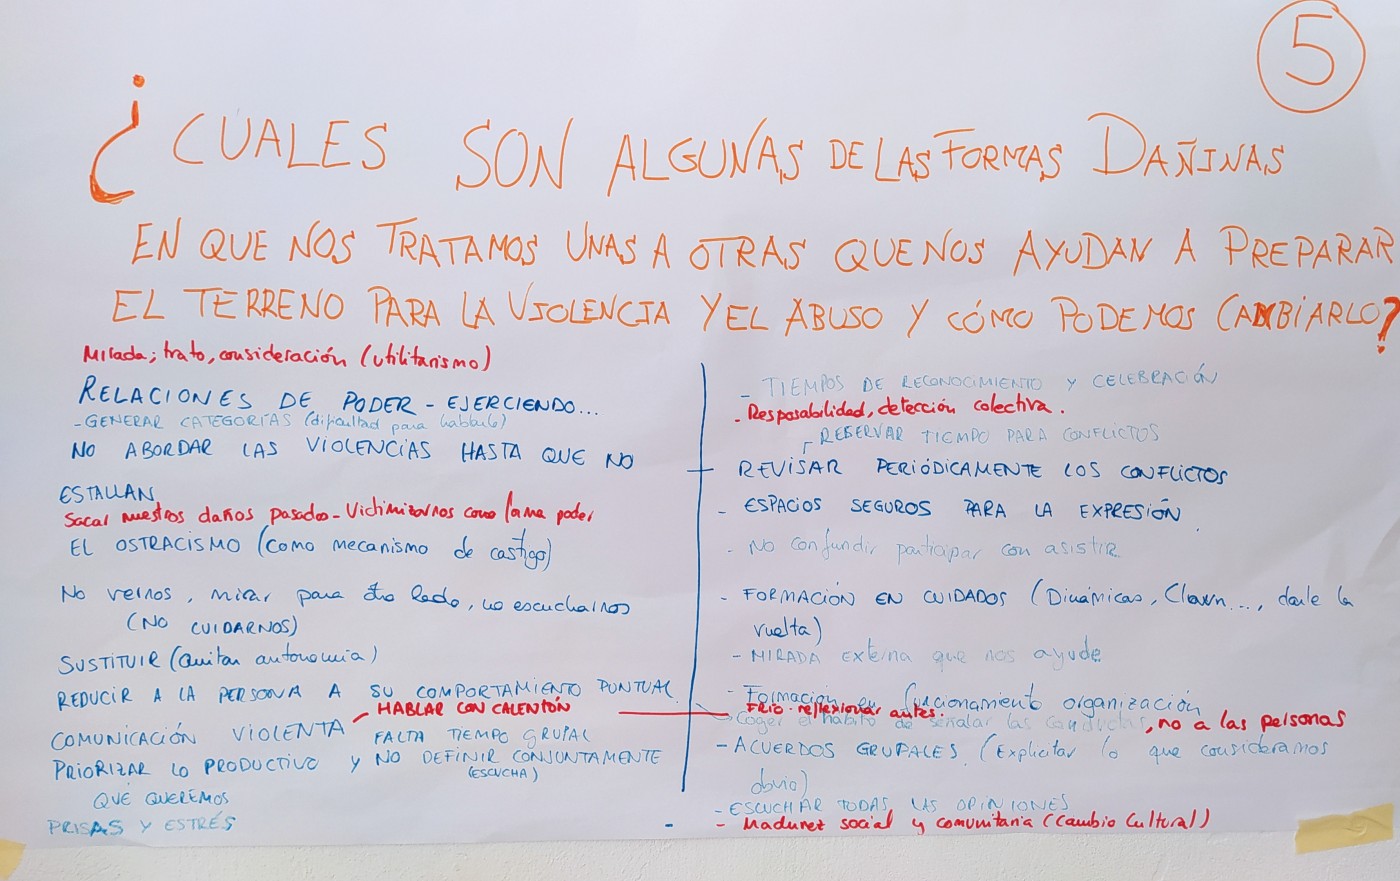 5
¿CUALES SON ALGUNAS DE LAS FORMAS DAÑINAS
EN QUE NOS TRATAMOS UNAS A OTRAS QUE NOS AYUDAN A PREPARAR
EL TERRENO PARA LA VIOLENCIA Y EL ABUSO Y CÓMO PODEMOS CAMBIARLO?
Mirada, trato, consideración (utilitarismo)
RELACIONES DE PODER - EJERCIENDO...
- GENERAR CATEGORÍAS (dificultad para hablarlo)
NO ABORDAR LAS VIOLENCIAS HASTA QUE NO
ESTALLAN
Sacar nuestros daños pasados - Victimizarnos como forma poder
EL OSTRACISMO (como mecanismo de castigo)
No vernos, mirar para otro lado, no escucharnos
(NO CUIDARNOS)
SUSTITUIR (Quitar autonomía)
REDUCIR A LA PERSONA A SU COMPORTAMIENTO PUNTUAL
HABLAR CON CALENTÓN
COMUNICACIÓN VIOLENTA
FALTA TIEMPO GRUPAL
PRIORIZAR LO PRODUCTIVO Y NO DEFINIR CONJUNTAMENTE
(ESCUCHA)
QUÉ QUEREMOS
PRISAS Y ESTRÉS
- TIEMPOS DE RECONOCIMIENTO Y CELEBRACIÓN
- Resposabilidad, detección colectiva.
RESERVAR TIEMPO PARA CONFLICTOS
- REVISAR PERIÓDICAMENTE LOS CONFLICTOS
- ESPACIOS SEGUROS PARA LA EXPRESIÓN.
- No confundir participar con asistir
- FORMACIÓN EN CUIDADOS (Dinámicas, Clown..., darle la
vuelta)
- MIRADA externa que nos ayude
- Formación en funcionamiento organización
FRIO - reflexionar antes.
Coger el hábito de señalar las conductas, no a las personas
- ACUERDOS GRUPALES (Explicitar lo que consideramos
obvio)
- ESCUCHAR TODAS LAS OPINIONES
- Madurez social y comunitaria (Cambio Cultural)